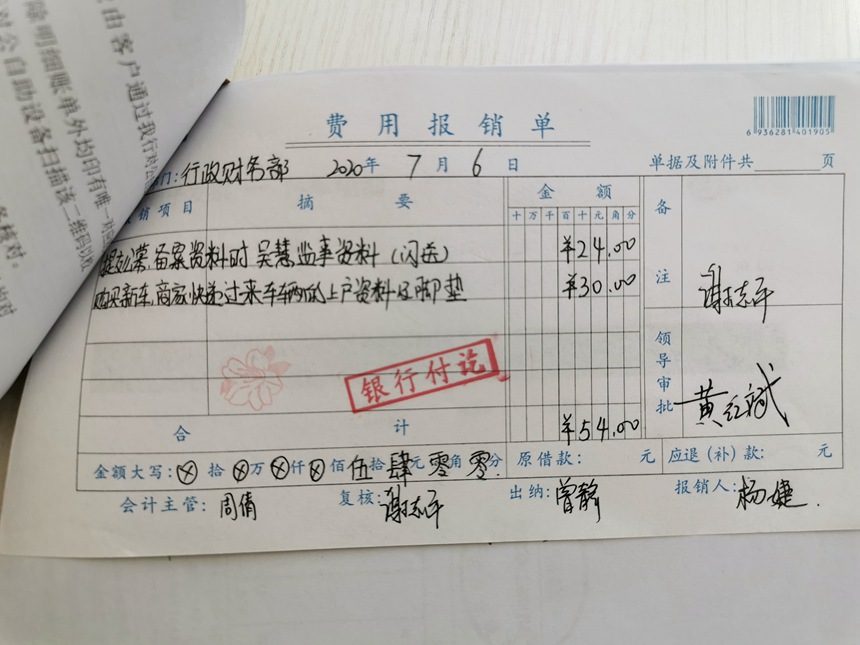 由客户通过我行对
除明细账单外均印有唯一
对公自助设备扫描该二维码以校
核对。
费用报销单
6 936281 401905
部门: 行政财务部 2020年 7月 6日 单据及附件共 页
报销项目 摘要 金额 备注
十 万 千 百 十 元 角 分
备案资料时 吴慧监事资料(闪送) ¥24.00
购买新车,商家快递过来车辆的上户资料及脚垫 ¥30.00
谢志平
银行付讫
领导审批 黄红斌
合计 ¥54.00
金额大写: ⊗拾⊗万⊗仟⊗佰伍拾肆元零角零分 原借款: 元 应退(补)款: 元
会计主管: 周倩 复核: 谢志平 出纳: 曾静 报销人: 杨婕.